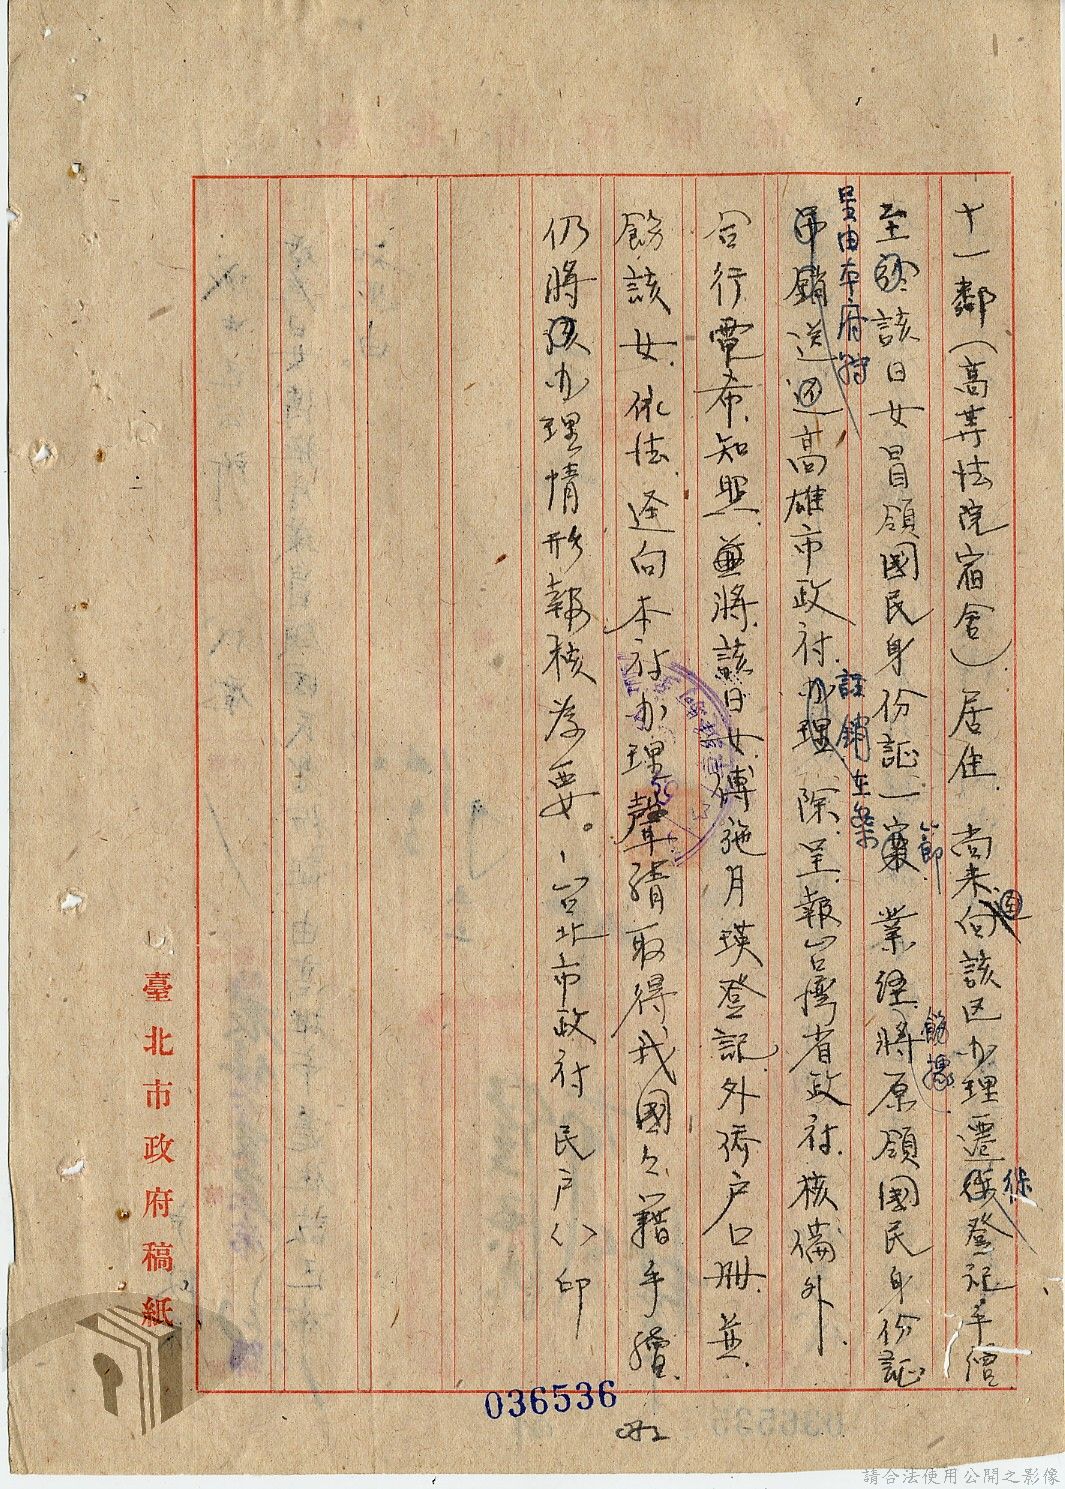 十一鄰(高等法院宿舍)居住尚未向該区办理遷徙登記手續
至
徙
至於該日女冒領國民身份証一案業経將原領國民身份証
節
飭據
吊銷送過高雄市政府办理除呈報台灣省政府核備外
呈由本府
註銷在案
合行電希知照並將該日女傅施月瑛登記外僑户口册並
飭該女依法逕向本府办理聲請取得我國公籍手續
仍將办理情形報核為要。台北市政府民户()印
臺北市政府稿紙
036536
請合法使用公開之影像